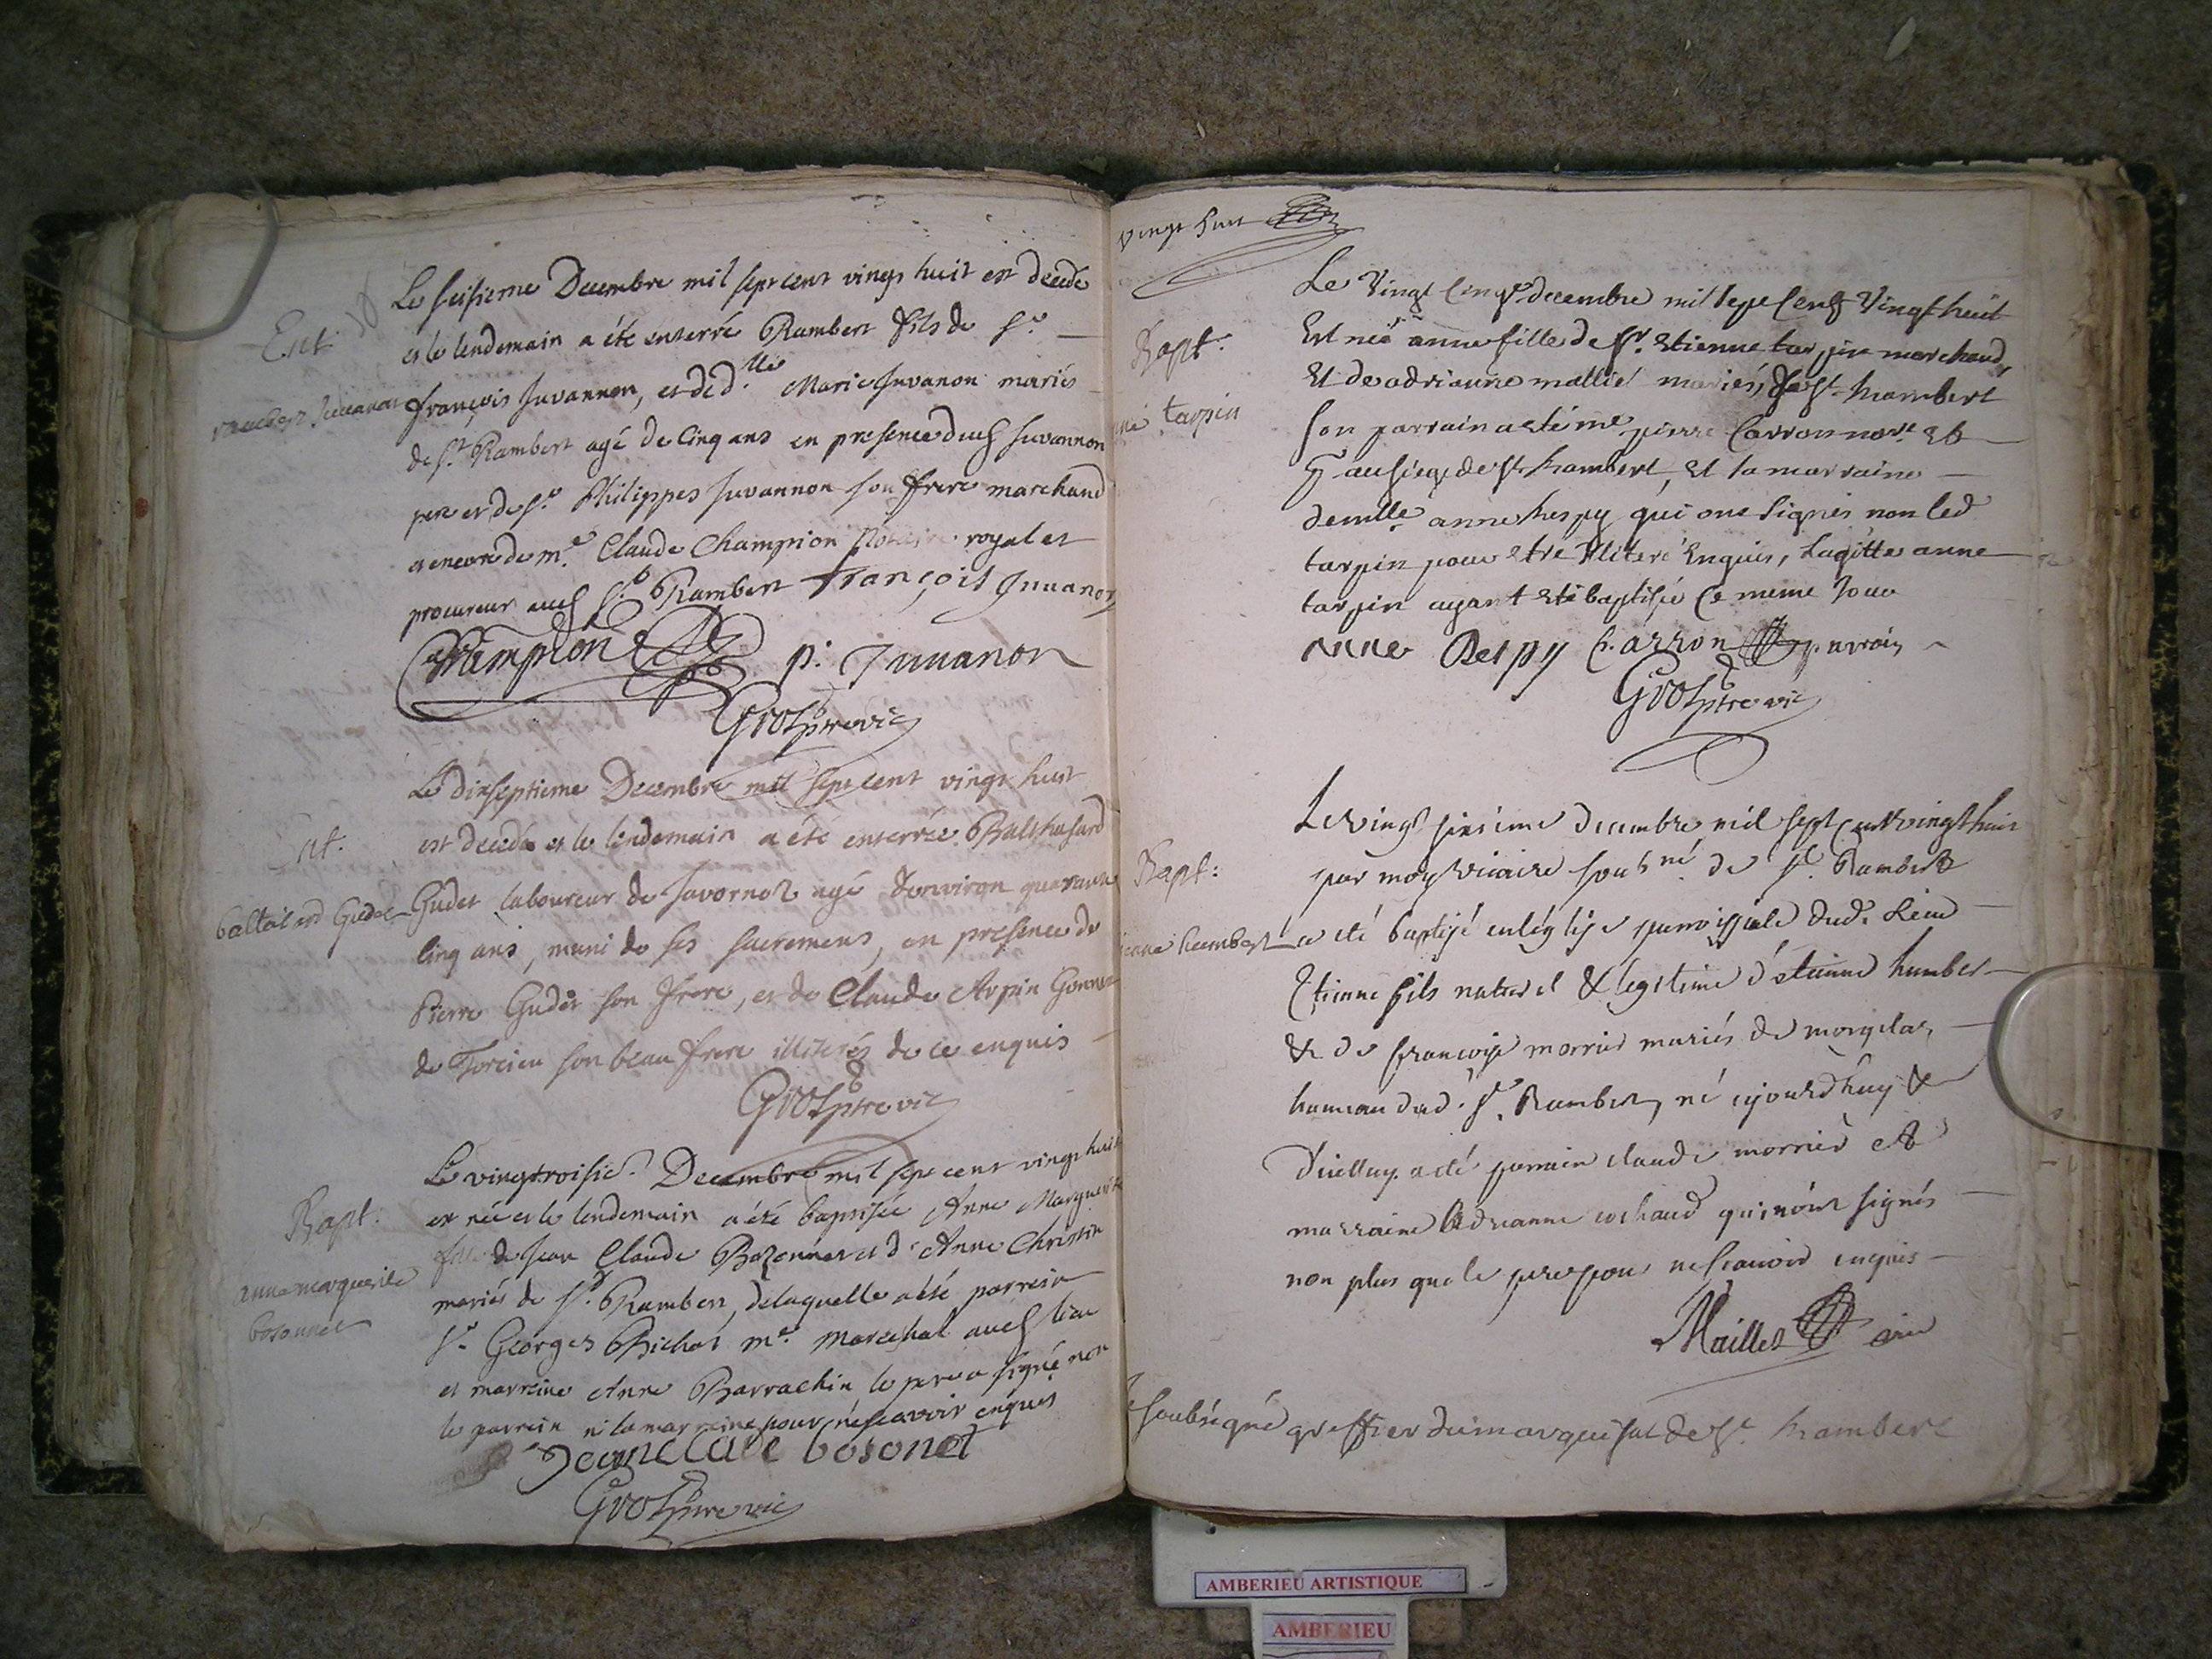 Ent
Rambert Juvanon
Le seisieme Decembre mil sept cent vingt huit est decedé
et le lendemain a été enterré Rambert fils de Sr.
françois Juvannon, et de dlle Marie Juvanon mariés
de St. Rambert agé de cinq ans en presence dud Juvannon
pere et de Sr. Philippes Juvannon son frere marchand
et encore de me. Claude Champion Notaire royal et
procureur aud St. Rambert François Juuanon
Champion p. Juuanon
Gros ptre vic
Ent.
baltasard Gudet
Le dixseptieme Decembre mil sept cent vingt huit
est decedé et le lendemain a été enterrée Balthasard
Gudet laboureur de Javornoz agé denviron quarante
cinq ans, muni de ses sacremens, en presence de
Pierre Gudet son frere, et de Claude Arpin
de Torcieu son beau frere illiterés de ce enquis
Gros ptre vic
Bapt.
anne marguerite
bosonnet
Le vingtroisie. Decembre mil sept cent vingt huit
est née et le lendemain a été baptisée Anne Marguerite
fille de Jean Claude Bozonnet et d'Anne Christin
mariés de St. Rambert, delaquelle a été parrein
Sr. Georges Bichat me. Marechal aud lieu
et marreine Anne Barrachin le pere a signé non
le parrein ni la marreine pour ne scavoir enquis
Jean Claude bosonet
Gros ptre vic
vingt huit
Bapt.
tarpin
Le Vingt Cinqe decembre mil sept Cent Vingt huit
Est neé anne fille de Sr. Etienne tarpin marchand,
Et de adrianne mallié mariés, de St. Rambert
son parrain a eté me pierre Carron nore. Et
au siege de St Rambert, Et la marraine
demlle anne Respy qui ont signés non led
tarpin pour etre illiteré Enquis, Laditte anne
tarpin ayant eté baptisée Ce meme Jour
Anne Respy Carron parrain
Gros ptre vic
Bapt:
humbert
Le vingt sixieme decembre mil sept cent vingt huit
par moy vicaire soubné de St. Rambert
a été baptisé en léglise parroissiale dud. lieu
Etienne fils naturel & legitime d'étienne humbert
& de françoise morrier mariés de
hameau dud. St. Rambert, né ajourdhuy &
diceluy a eté parrain claude morrier et
marraine Adrianne cochaud qui n'ont signés
non plus que le pere pour ne scavoir enquis
Maillet vic
soubsigné greffier du marquisat de St. Rambert
AMBERIEU ARTISTIQUE
AMBERIEU